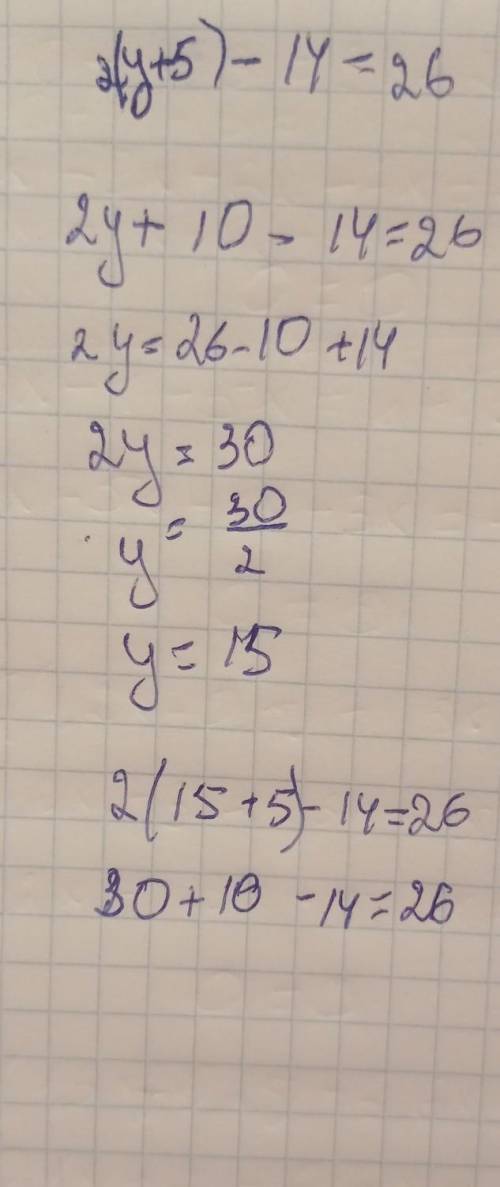 2(y+5) - 14 = 26
2y + 10 - 14 = 26
2y = 26 - 10 + 14
2y = 30
y = 30/2
y = 15
2(15+5) - 14 = 26
30 + 10 - 14 = 26